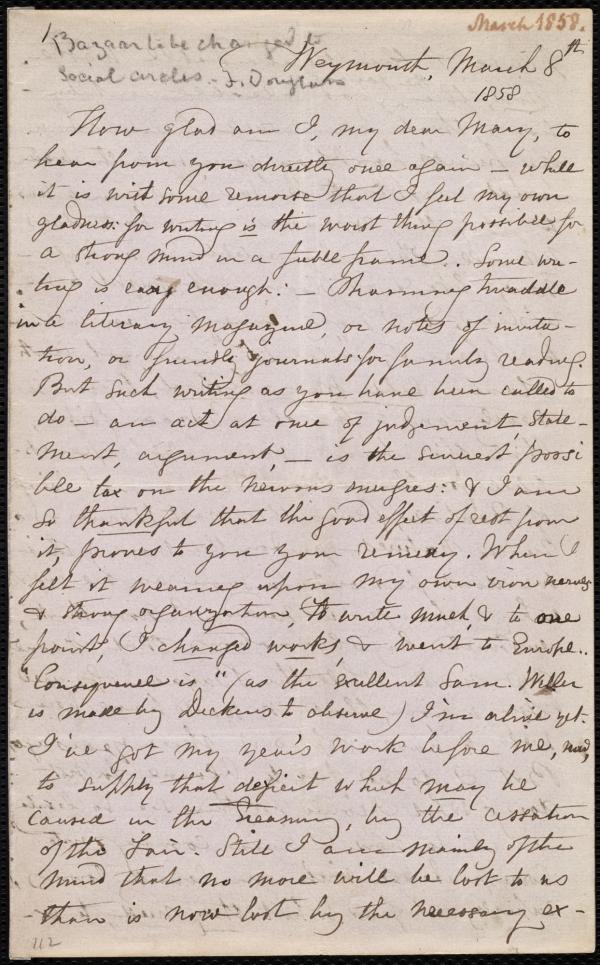 March 1858.
Bazaar to be changed to
Social circles - F. Douglass
Weymouth, March 8th
1858
How glad am I, my dear Mary, to
hear from you directly once again - while
it is with some remorse that I feel my own
gladness: for writing is the worst thing possible for
a strong mind in a feeble frame. Some wri-
ting is easy enough: - Skimming twaddle
in a literary magazine, or notes of invita-
tion, or friendly journals for family reading.
But such writing as you have been called to
do - an act at once of judgement, state-
ment, argument, - is the severest possi
ble tax on the nervous energies: & I am
so thankful that the good effect of rest from
it, proves to you your remedy. When I
felt it wearing upon my own iron nerves
& strong organization, to write much, & to one
point, I changed works, & went to Europe..
"Consequence is" (as the excellent Sam. Weller
is made by Dickens to observe) I'm alive yet.
I've got my year's work before me, now,
to supply that deficit which may be
caused in the Treasury, by the cessation
of the Fair. Still I am mainly of the
mind that no more will be lost to us
than is now lost by the necessary ex-
112